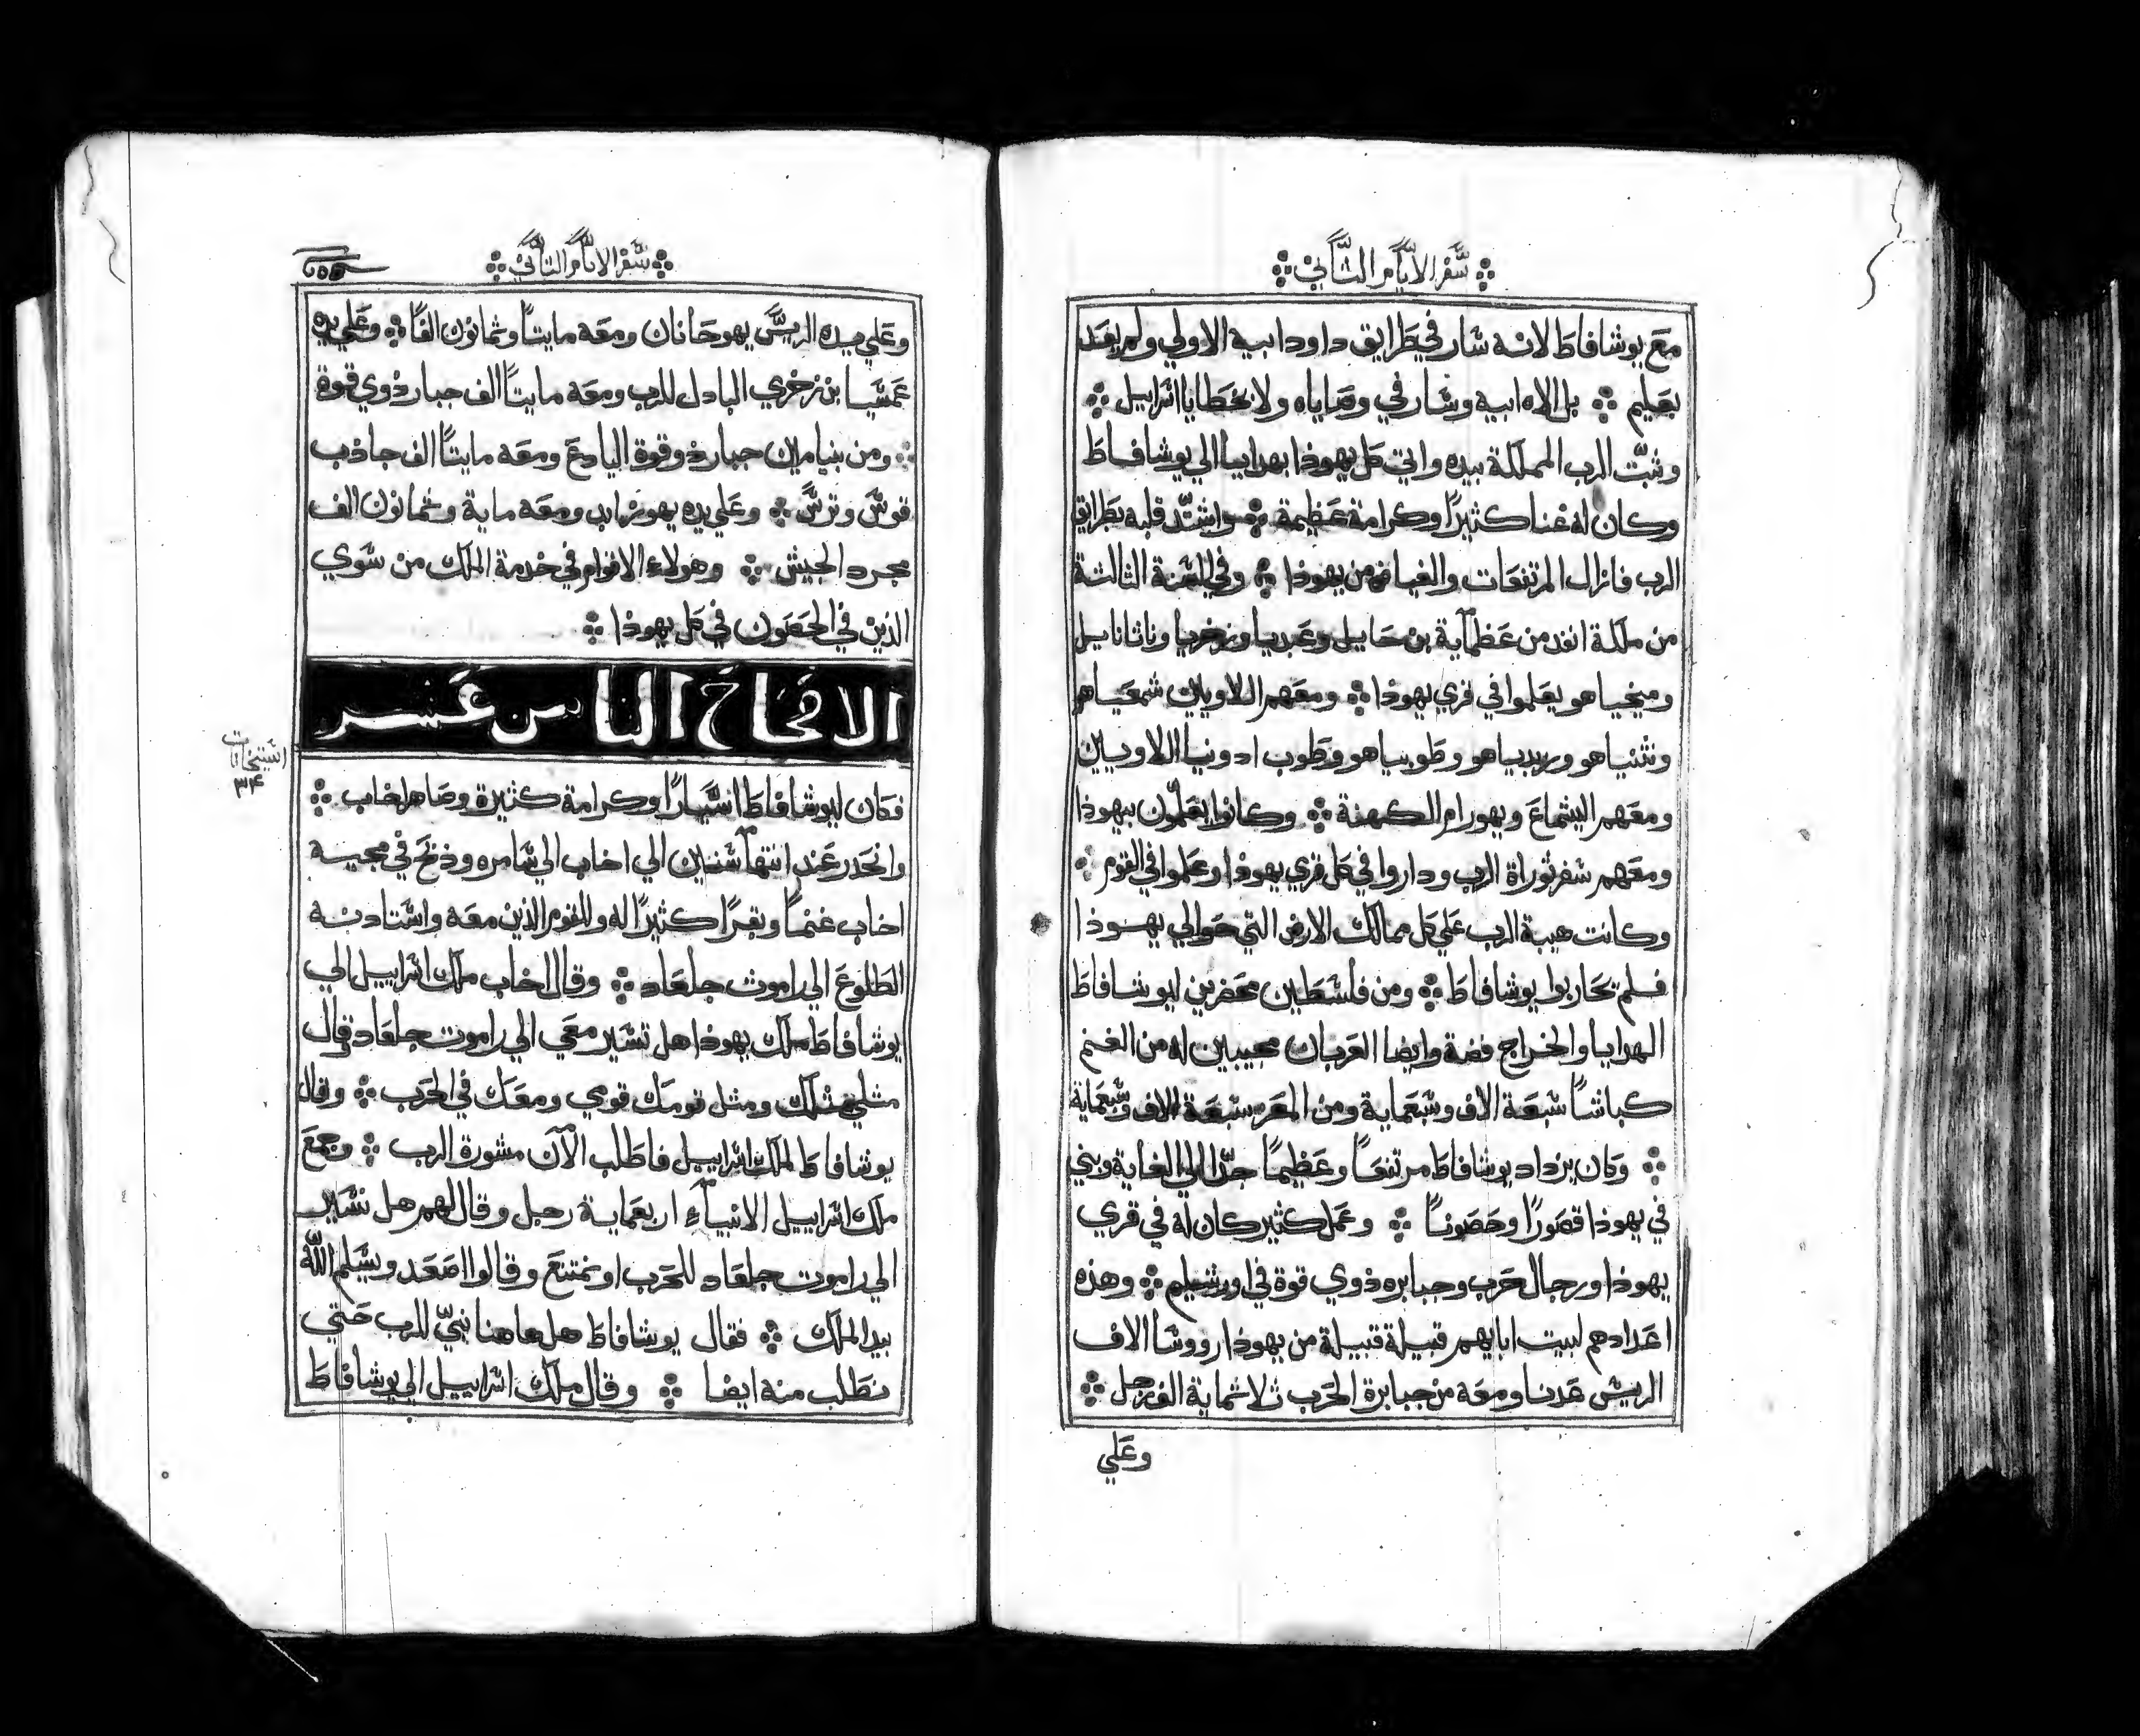 سفر الايام الثاني
مع يوشافاط لانه سار في طرايق داود ابيه الاولي ولم يعبد
بعليم ❖ بل الاه ابيه وسار في وصاياه ولا بخطايا اسراييل ❖
وثبت الرب المملكة بيده واتي كل يهوذا بهدايا الي يوشافاط
وكان له غنا كثيرًا وكرامة عظيمة ❖ واشتد قلبه بطرايق
الرب فازال المرتفعات والغياض من يهوذا ❖ وفي السنة الثالثة
من ملكة انفد من عظمآيه بن حاييل وعبديا وزخريا وناثاناييل
وميخيا هو يعلموا في قري يهوذا ❖ ومعهم اللاويين شمعياهو
ونثنياهو وزبدياهو وطوبياهو وطوب ادونيا اللاويين
ومعهم اليشماع ويهورام الكهنة ❖ وكانوا يعلمون بيهوذا
ومعهم سفر توراة الرب وداروا في كل قري يهوذا وعلموا في القوم ❖
وكانت هيبة الرب علي كل ممالك الارض التي حوالي يهوذا
فلم تحاربوا يوشافاط ❖ ومن فلسطين محضرين ليوشافاط
الهدايا والخراج فضة وايضا العربان مجيبين له من الغنم
كباشاً سبعة الاف وسبعماية ومن المعز سبعة الاف وسبعماية
❖ وكان يزداد يوشافاط مرتفعاً وعظيماً جدًا الي الغاية وبني
في يهوذا قصورًا وحصوناً ❖ وعمل كثير كان له في قري
يهوذا ورجال حرب وجبابره ذوي قوة في اورشليم ❖ وهذه
اعدادهم لبيت ابايهم قبيلة قبيلة من يهوذا رووسا الاف
الريس عدنا ومعه من جبابرة الحرب ثلاثماية الف رجل ❖
وعلي
سفر الايام الثاني
وعلي يده الريس يهوحانان ومعه مايتاً وثمانون الفاً ❖ وعلي يده
عمسيا بن زخري الباذل للرب ومعه مايتاً الف جبار ذوي قوة
❖ ومن بنيامين جبار ذو قوة اليادع ومعه مايتاً الف جاذب
قوس وترس ❖ وعلي يده يهوزاب ومعه ماية وثمانون الف
مجرد الجيش ❖ وهولاء الاقوام في خدمة الملك من سوي
الذين في الحصون في كل يهوذا ❖
الافحاح الثامن عشر
فكان ليوشافاط اشيارًا وكرامة كثيرة وصاهر اخاب ❖
وانحدر عند انتهآ سنين الي اخاب الي شامره وذبح في مجيه
اخاب غنماً وبقرًا كثيرًا له وللقوم الذين معه واشتادنه
الطلوع الي راموث جلعاد ❖ وقال اخاب ملك اسراييل الي
يوشافاط ملك يهوذا هل تسير معي الي راموث جلعاد قال
مثلي مثلك ومثل قومك قومي ومعك في الحرب ❖ وقال
يوشافاط لملك اسراييل فاطلب الآن مشورة الرب ❖ وجمع
ملك اسراييل الانبيآء اربعماية رجل وقال لهم هل نسير
الي راموت جلعاد للحرب او نمتنع وقالوا اصعد ويسلم الله
بيد الملك ❖ فقال يوشافاط هل هاهنا نبي للرب حتي
نطلب منه ايضا ❖ وقال ملك اسراييل الي يوشافاط
٣٤